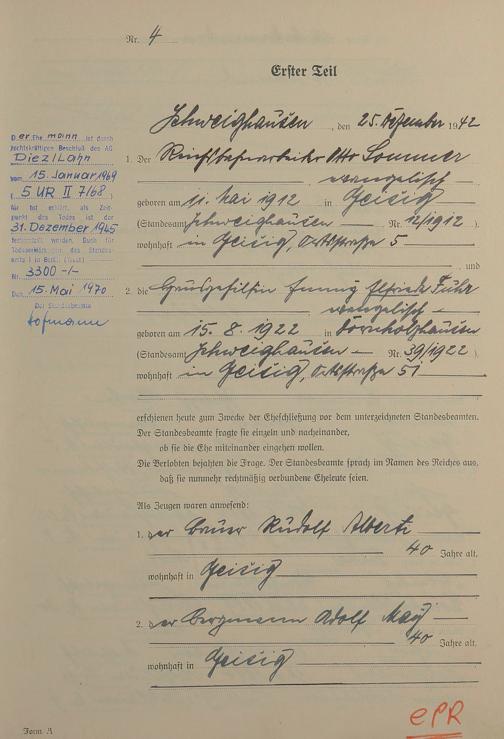 Nr. 4
Erster Teil
Schweighausen, den 25. Dezember 1942
1. Der Reichsbahnarbeiter Otto Sommer
evangelisch
geboren am 11. Mai 1912 in Geisig
(Standesamt Schweighausen — Nr. 12/1912)
wohnhaft in Geisig, Ortsstraße 5
und
2. die Hausgehilfin Emmy Elfriede Fuhr
evangelisch
geboren am 15.8.1922 in Dornholzhausen
(Standesamt Schweighausen — Nr. 39/1922)
wohnhaft in Geisig, Ortsstraße 51
erschienen heute zum Zwecke der Eheschließung vor dem unterzeichneten Standesbeamten.
Der Standesbeamte fragte sie einzeln und nacheinander,
ob sie die Ehe miteinander eingehen wollen.
Die Verlobten bejahten die Frage. Der Standesbeamte sprach im Namen des Reiches aus,
daß sie nunmehr rechtmäßig verbundene Eheleute seien.
Als Zeugen waren anwesend:
1. der Bauer Rudolf Alberti
40 Jahre alt,
wohnhaft in Geisig
2. der Bergmann Adolf May
40 Jahre alt,
wohnhaft in Geisig
Der Ehemann ist durch
rechtskräftigen Beschluß des AG
Diez/Lahn
vom 15. Januar 1969
( 5 UR II 7/68 )
für tot erklärt, als Zeit-
punkt des Todes ist der
31. Dezember 1945
festgestellt worden. Buch für
Todeserklärungen des Standes-
amts I in Berlin (West)
Nr. 3300 -/-
Den 15. Mai 1970
Der Standesbeamte
Hofmann
Form. A
ePR